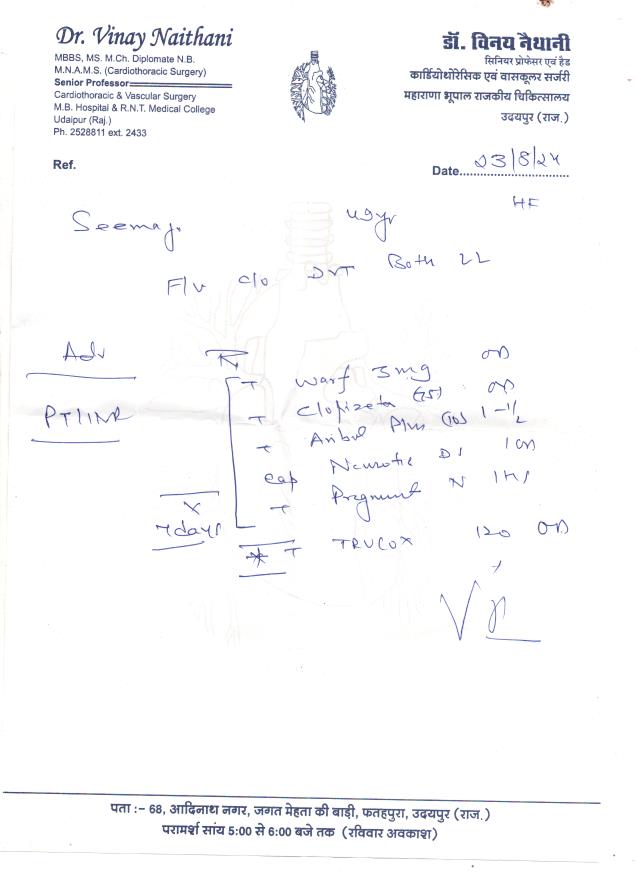 Dr. Vinay Naithani
MBBS, MS. M.Ch. Diplomate N.B.
M.N.A.M.S. (Cardiothoracic Surgery)
Senior Professor
Cardiothoracic & Vascular Surgery
M.B. Hospital & R.N.T. Medical College
Udaipur (Raj.)
Ph. 2528811 ext. 2433
डॉ. विनय नैथानी
सिनियर प्रोफेसर एवं हैड
कार्डियोथोरेसिक एवं वासकूलर सर्जरी
महाराणा भूपाल राजकीय चिकित्सालय
उदयपुर (राज.)
Ref.
Date 23/8/24
Seema 49yr
F/U c/o DVT Both LL
Adv
PT/INR
T Warf 5mg OD
T Clopizeta (75) OD
T Plus (10) 1-1/2
Cap D 1 OD
T N 1HS
x 7days
* T TRUCOX 120 OD
पता :– 68, आदिनाथ नगर, जगत मेहता की बाड़ी, फतहपुरा, उदयपुर (राज.)
परामर्श सांय 5:00 से 6:00 बजे तक (रविवार अवकाश)